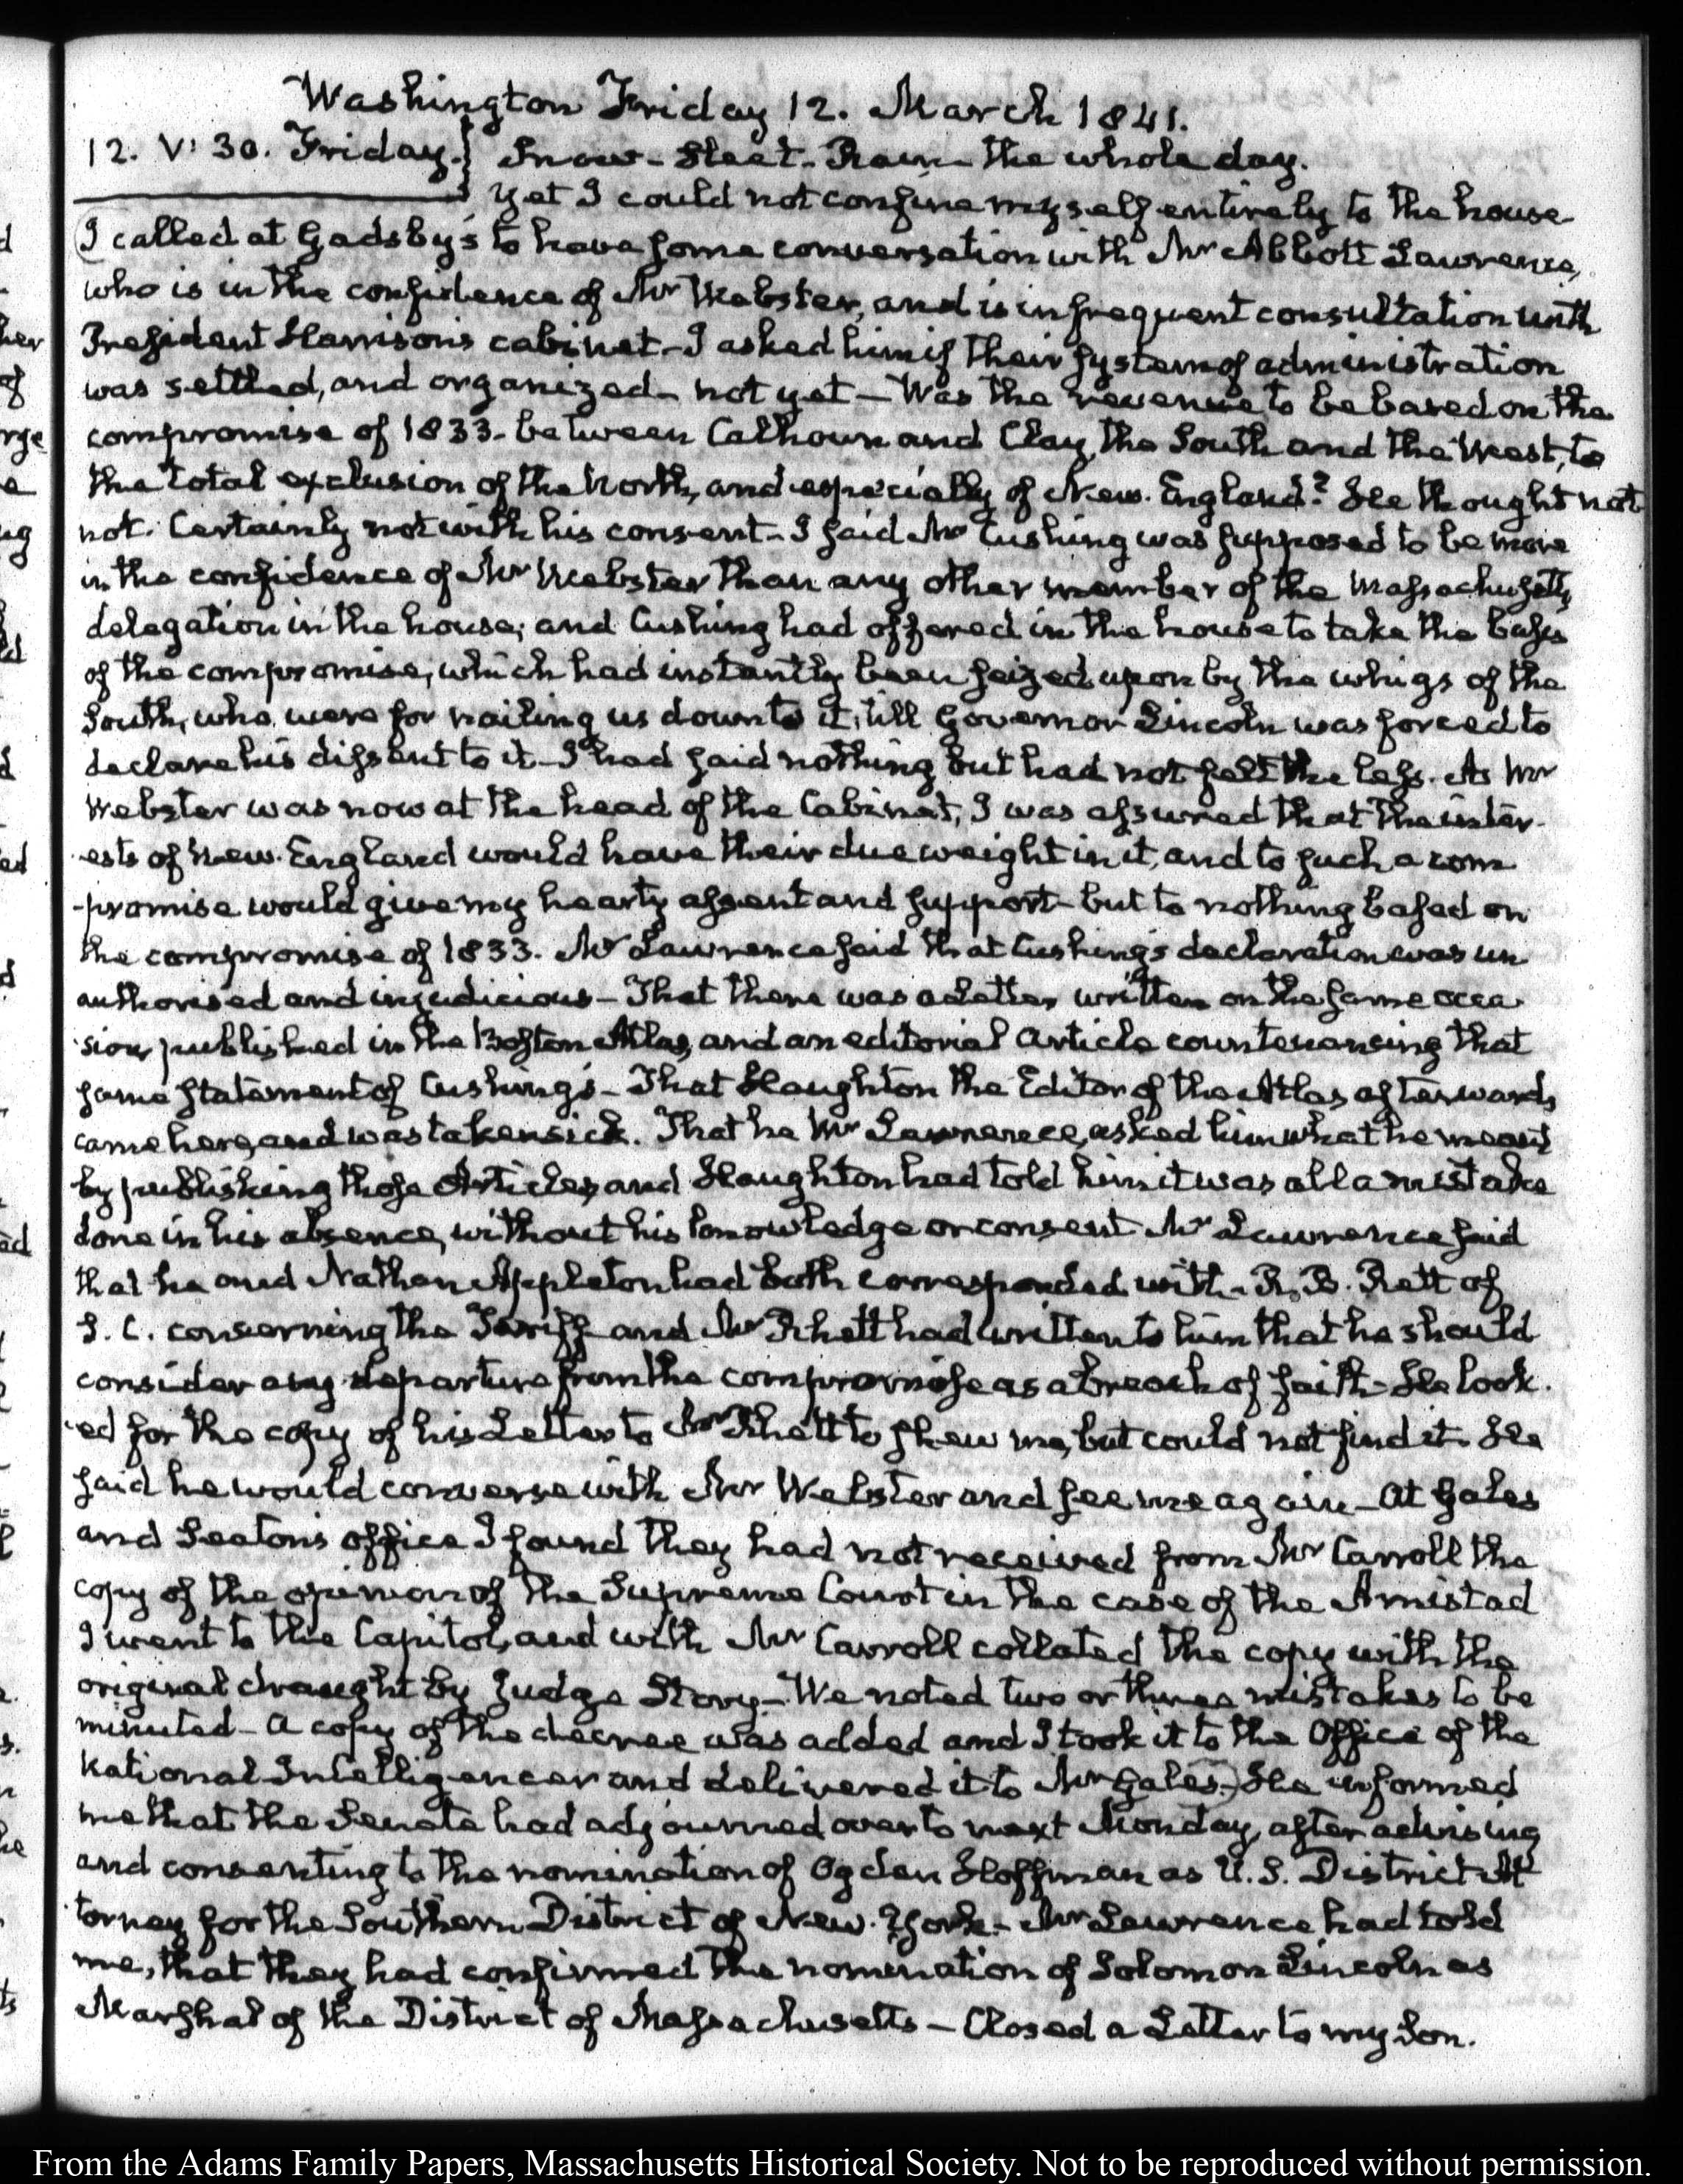 Washington Friday 12. March 1841.
12. V: 30. Friday.} Snow - Sleet - Rain - the whole day.
Yet I could not confine myself entirely to the house
I called at Gadsby's to have some conversation with Mr Abbott Lawrence,
who is in the confidence of Mr Webster, and is in frequent consultation with
President Harrison's cabinet - I asked him if their system of administration
was settled, and organized - not yet - Was the revenue to be based on the
compromise of 1833 - between Calhoun and Clay, the South and the West, to
the total exclusion of the North, and especially of New-England? He thought not
not. Certainly not with his consent - I said Mr Cushing was supposed to be more
in the confidence of Mr Webster than any other member of the Massachusetts
delegation in the house; and Cushing had offered in the house to take the basis
of the compromise, which had instantly been seized upon by the whigs of the
South, who were for nailing us down to it, till Governor Lincoln was forced to
declare his dissent to it - I had said nothing but had not felt the less. As Mr
Webster was now at the head of the Cabinet, I was assured that the inter-
ests of New-England would have their due weight in it, and to such a com
-promise would give my hearty assent and support - but to nothing based on
the compromise of 1833. Mr Lawrence said that Cushing's declaration was un
authorised and injudicious - That there was a Letter written on the same occa-
sion published in the Boston Atlas, and an editorial Article countenancing that
same statement of Cushing's - That Haughton the Editor of the Atlas afterwards
came here, and was taken sick. That he Mr Lawrence, asked him what he meant
by publishing those Articles, and Haughton had told him it was all a mistake
done in his absence, without his knowledge or consent Mr Lawrence said
that he and Nathan Appleton had both corresponded with - R. B. Rett of
S. C. concerning the Tariff - and Mr Rhett had written to him that he should
consider any departure from the compromise as a breach of faith - He look-
ed for the copy of his Letter to Mr Rhett to shew me, but could not find it. He
said he would converse with Mr Webster and see me again - At Gales
and Seaton's office I found they had not received from Mr Carroll the
copy of the opinion of the Supreme Court in the case of the Amistad
I went to the Capitol, and with Mr Carroll collated the copy with the
original draught by Judge Story - We noted two or three mistakes to be
minuted - a copy of the decree was added and I took it to the Office of the
National Intelligencer and delivered it to Mr Gales.) He informed
me that the Senate had adjourned over to next Monday, after advising
and consenting to the nomination of Ogden Hoffman as U.S. District At
torney for the Southern District of New-York - Mr Lawrence had told
me, that they had confirmed the nomination of Solomon Lincoln as
Marshal of the District of Massachusetts - Closed a Letter to my Son.
From the Adams Family Papers, Massachusetts Historical Society. Not to be reproduced without permission.